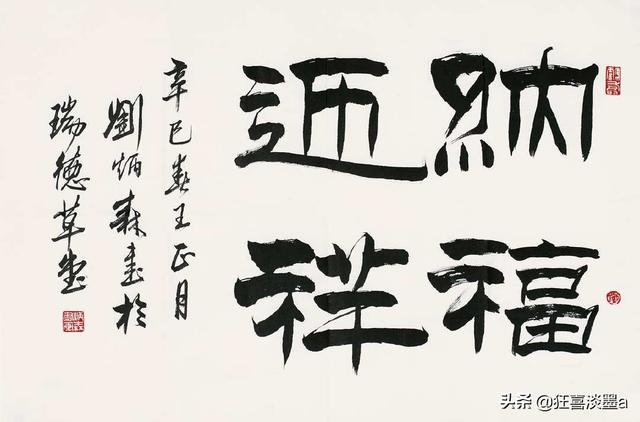 納福
迎祥
辛巳春王正月
劉炳森書於
瑞德草堂
头条 @狂喜淡墨a